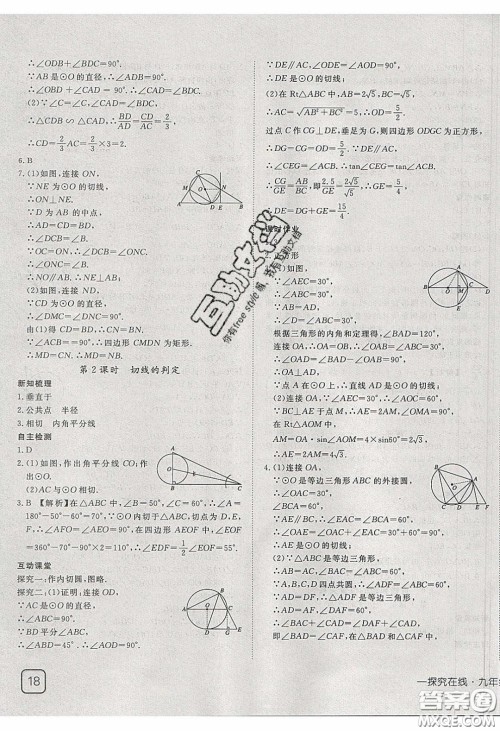 ∴∠ODB+∠BDC=90°.
∵AB 是⊙O 的直径,∴∠ADB=90°.
∴∠OBD+∠CAD=90°.∴∠CAD=∠BDC.
(2)∵∠C=∠C,∠CAD=∠CDB,
∴△CDB∽△CAD.∴BD/AD=CD/AC=2/3.
∴CD=2/3AC=2/3×3=2.
6.B
7.(1)如图,连接 ON,
∵NE 为⊙O 的切线,
∴ON⊥NE.
∵D 为 AB 的中点,
∴AD=CD=BD.
∴∠DCB=∠DBC.
∵OC=ON,∴∠ONC=∠OCN.
∴∠ONC=∠DBC.
∴ON∥AB.∴NE⊥AB.
(2)如图,连接 DN,
∵CD 为⊙O 的直径,
∴∠DMC=∠DNC=90°.
由(1)得 CD=BD.∴CN=NB.
∵∠ACB=90°,∴四边形 CMDN 为矩形.
∴MD=CN. ∴MD=NB.
第2课时 切线的判定
新知梳理
1.垂直于
2.公共点 半径
3.相切 内角平分线
自主检测
1.D
2.(1)如图,作出角平分线 CO,
作出⊙O.
(2)AC 与⊙O 相切.
3.B 【解析】在△ABC 中,∠B=50°,∠C=60°,∴∠A=
180°-50°-60°=70°. ∵⊙O 内切于△ABC,切点分别为
D,E,F,∴∠AEO=∠AFO=90°.在四边形 AEOF 中,∠EOF
=360°-70°-90°×2=110°.∴∠EDF=1/2∠EOF=55°.
互动课堂
探究一:作内切圆,图略.
探究二:(1)证明:连接 OD,
∵AC 是⊙O 的直径,
∴∠ABC=90°.
∵BD 平分∠ABC,
∴∠ABD=45°. ∴∠AOD=90°.
18
∵DE∥AC,∴∠ODE=∠AOD=90°.
∴DE 是⊙O 的切线.
(2)在 Rt△ABC 中,AB=2√5,BC=√5,
∴AC=√(AB²+BC²)=5.∴OD=5/2.
过点 C 作 CG⊥DE,垂足为 G,则四边形 ODGC 为正方形,
∴DG=CG=OD=5/2.
∴∠CEG=∠ACB.∴tan∠CEG=tan∠ACB.
∴CG/GE=AB/BC,即2.5/GE=2√5/√5.∴GE=5/4.
∴DE=DG+GE=15/4.
课时作业
如图,
∠AEC=30°,
∴∠ABC=30°.
∵AB=AD,
∴∠D=∠ABC=30°.
根据三角形的内角和定理得,∠BAD=120°.
连接 OA,∴OA=OB.
∴∠OAB=∠ABC=30°.
∴∠OAD=∠BAD-∠OAB=90°.
∴OA⊥AD.
∵点 A 在⊙O 上,∴直线 AD 是⊙O 的切线.
(2)连接 OA,∵∠AEC=30°,∴∠AOC=60°.
∵BC⊥AE 于点 M,
∴AE=2AM,∠OMA=90°.
在 Rt△AOM 中,
AM=OA·sin∠AOM=4×sin60°=2√3.
∴AE=2AM=4√3.
3.(1)连接 OA,
∵⊙O 是等边三角形 ABC 的外接圆,
∴∠OAC=30°,∠BCA=60°.
∵AE∥BC,∴∠EAC=∠BCA=60°.
∴∠OAE=∠OAC+∠EAC=30°+60°=90°.
∴AE 是⊙O 的切线.
(2)∵△ABC 是等边三角形,
∴AB=AC,∠BAC=∠ABC=60°.
∵A,B,C,D 四点共圆,∴∠ADF=∠ABC=60°.
∵AD=DF,∴△ADF 是等边三角形.
∴AD=AF,∠DAF=60°.
∴∠BAC+∠CAD=∠DAF+∠CAD,
即∠BAD=∠CAF.
一探究在线·九年
互助文档
答案圈
MXQE.COM